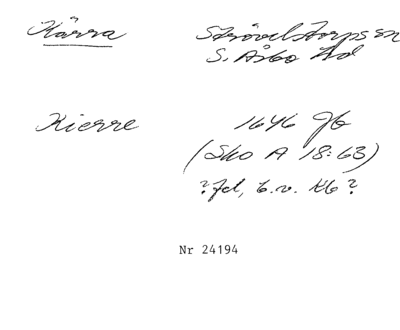 Kärra Strövelstorps sn
S. Åsbo hd
Kierre 1646 Jb
(Sko A 18:63)
Nr 24194